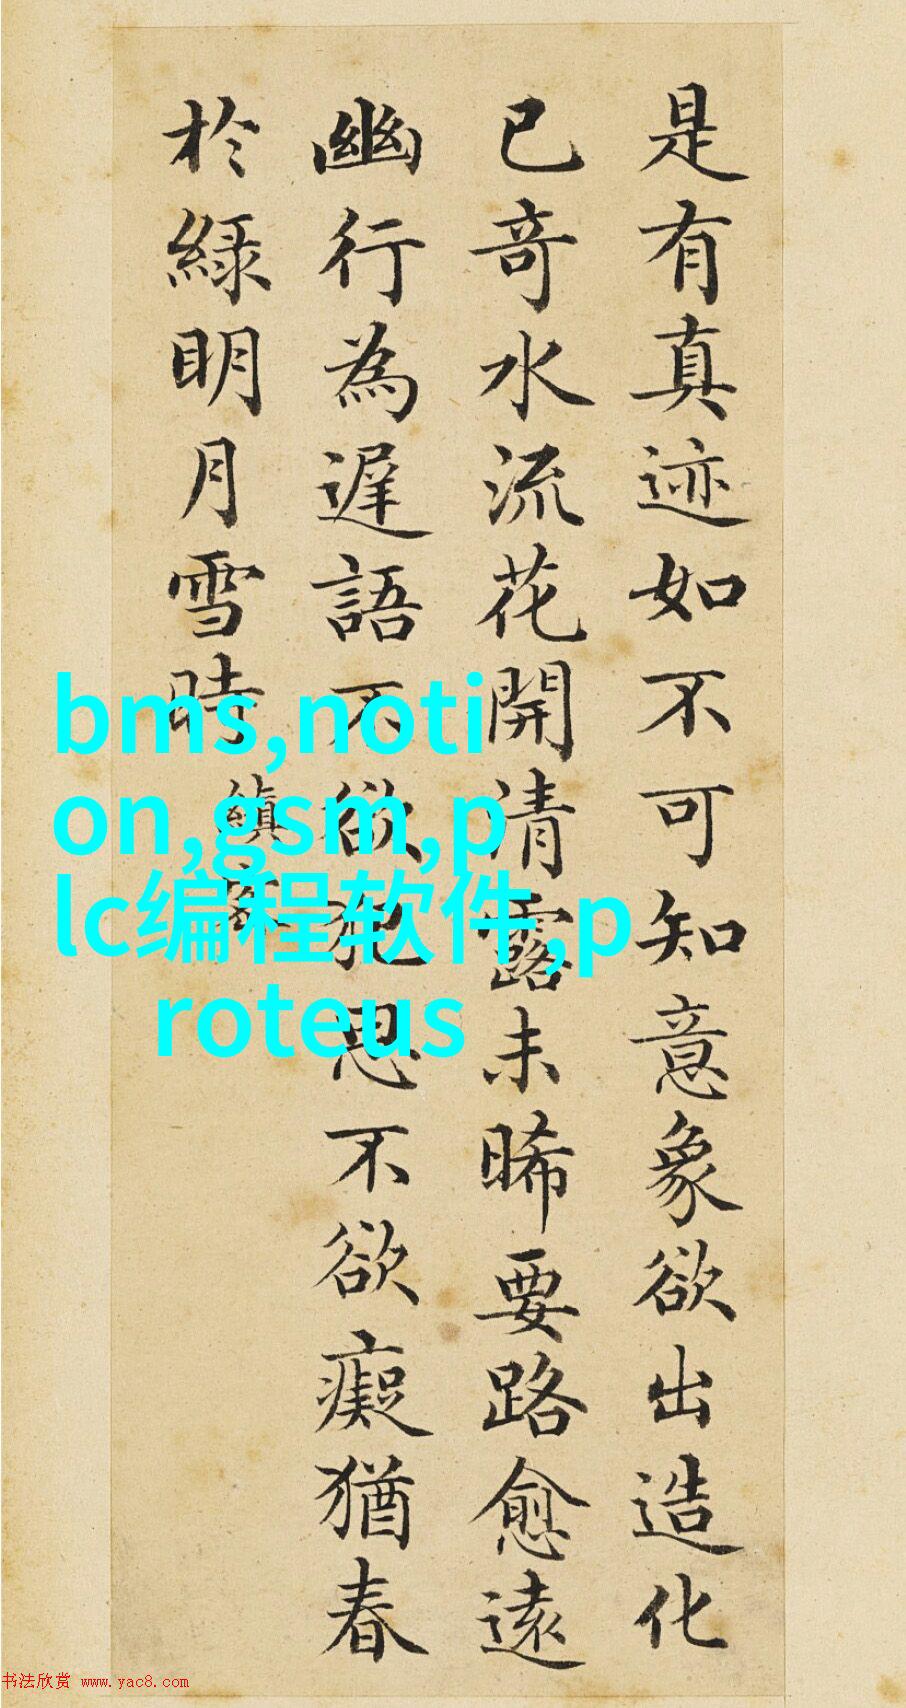 是有真迹如不可知意象欲出造化
已奇水流花開清露未晞要路愈遠
幽行為遲語不欲犯思不欲癡猶春
於綠明月雪時
bms,noti
on,gsm,p
lc编程软件,p
roteus
书法欣赏 www.yac8.com